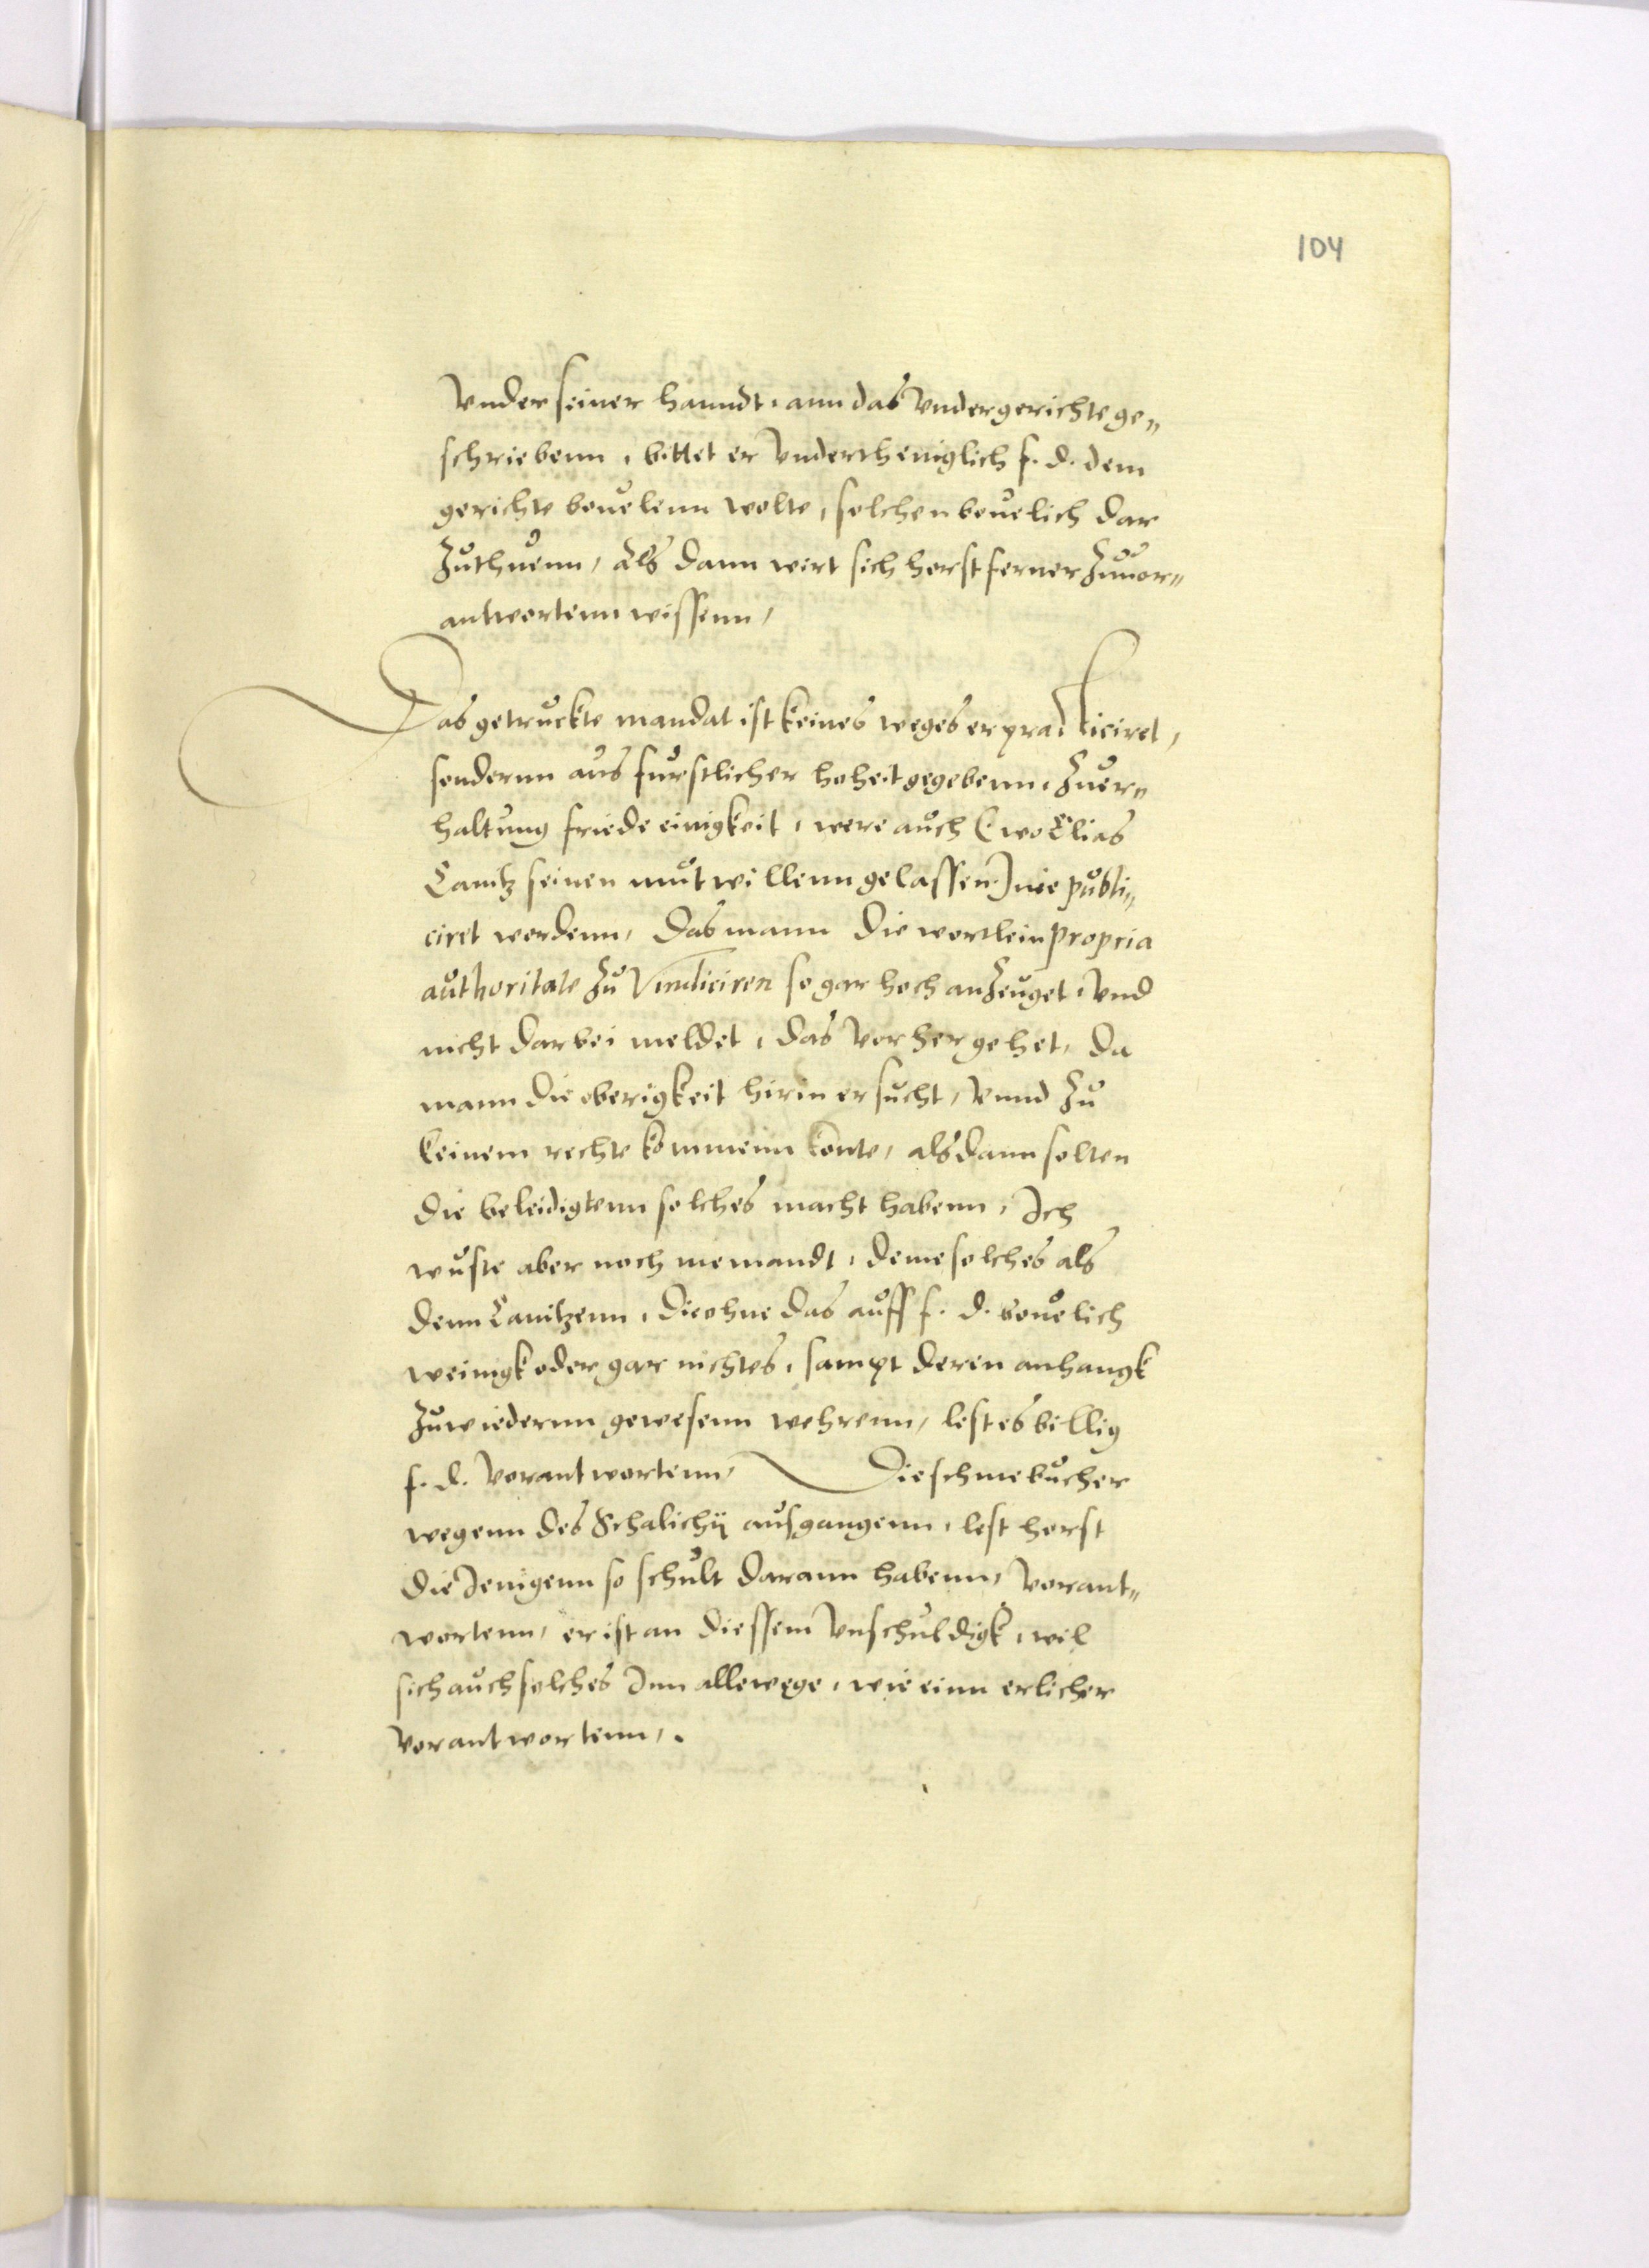 104
Vnder seiner hanndt, ann das Vndergerichte ge„
schriebenn, bittet er Vndertheniglich f. d. dem
gerichte beuelenn wolte, solchen beuelich dar
Zuthuenn, Als dann wirt sich horst ferner Zuuor„
antwortenn wissenn,
Das getruckte mandat ist keines weges erpracticiret,
sondernn aus furstlicher hoheit gegebenn, Zuer„
haltung friede einigkeit, were auch (wo Elias
Canitz seinen mutwillenn gelassen) nie publi„
ciret wordenn, Das mann die wortlein propria
authoritate Zu Vindiciren so gar hoch anZeuget, Vnd
nicht darbei meldet, das Vorhergehet, Da
mann die oberigkeit hirin ersucht, Vnnd Zu
keinem rechte kommenn konte, alsdann solten
die beleidigtenn solches macht habenn, Ich
wuste aber noch niemandt, deme solches als
denn Canitzenn, die ohne das auff f. d. beuelich
weinigk oder gar nichtes, sampt deren anhangk
Zuwiedernn gewesenn wehrenn, lest es billig
f. d. Vorantwortenn, Die schmebucher
wegenn des Schalichij ausgangenn, lest horst
die Jenigenn so schult darann habenn, Vorant„
wortenn, er ist an diessem Vnschuldigk, wil
sich auch solches Inn allewege, wie einn erlicher
Vorantwortenn,.